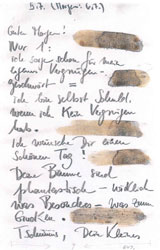 5.7. (Morgen: 6.7.)
Guten Morgen!
Nur 1:
ich sorge schon für mein
eigenes Vergnügen.
=
ich bin selbst Schuld.
wenn ich kein Vergnügen
habe.
Ich wünsche Dir einen
schönen Tag!
Deine Bäume sind
phantastisch – wirklich
was Besonderes – was zum
Tschüss, Dein Kleines